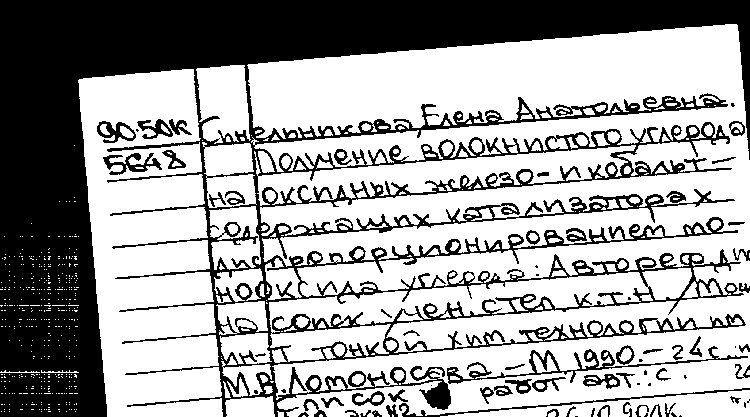 90-50К Синельникова, Елена Анатольевна.
5648 Получение волокнистого углерода
на оксидных железо- и кобальт-
содержащих катализаторах
диспропорционированием мо-
нооксида углерода: Автореф. ди
на соиск. учен. степ. к.т.н. / Мос
ин-т тонкой хим. технологии им
М.В. Ломоносова. - М 1990. - 24 с.
Список работ авт.: с.